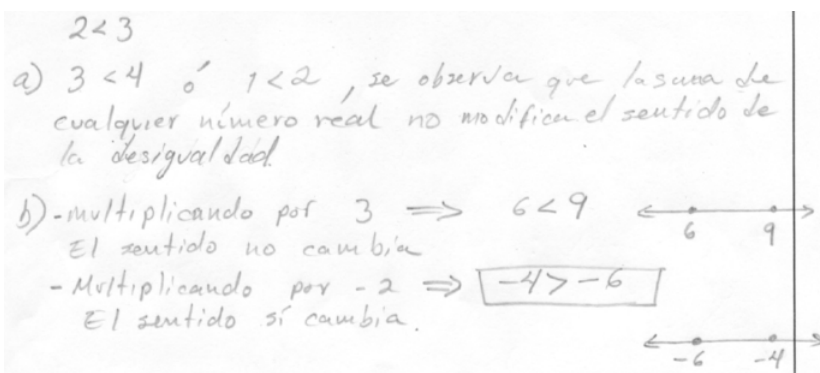 2<3
a) 3<4 ó 1<2, se observa que la suma de
cualquier número real no modifica el sentido de
la desigualdad.
b) - multiplicando por 3 ⇒ 6<9
6 9
El sentido no cambia
- Multiplicando por -2 ⇒ -4>-6
El sentido sí cambia.
-6 -4